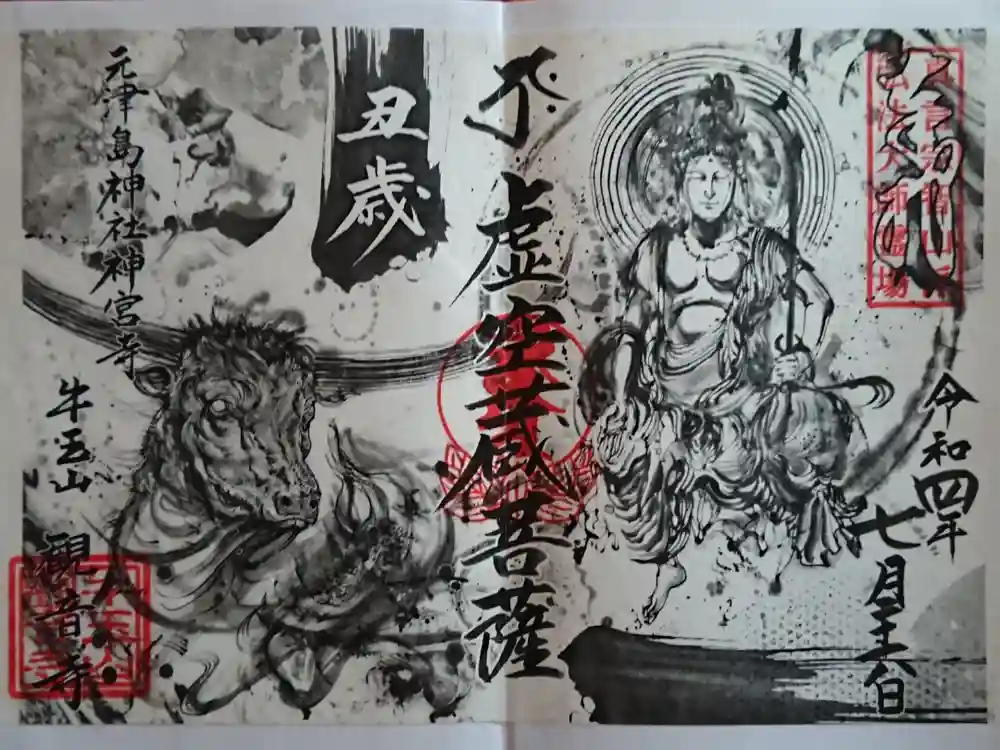 真言宗智山派
弘法大師霊場
令和四年
七月二十六日
虚空蔵菩薩
丑歳
元津島神社神宮寺
牛玉山
観音寺